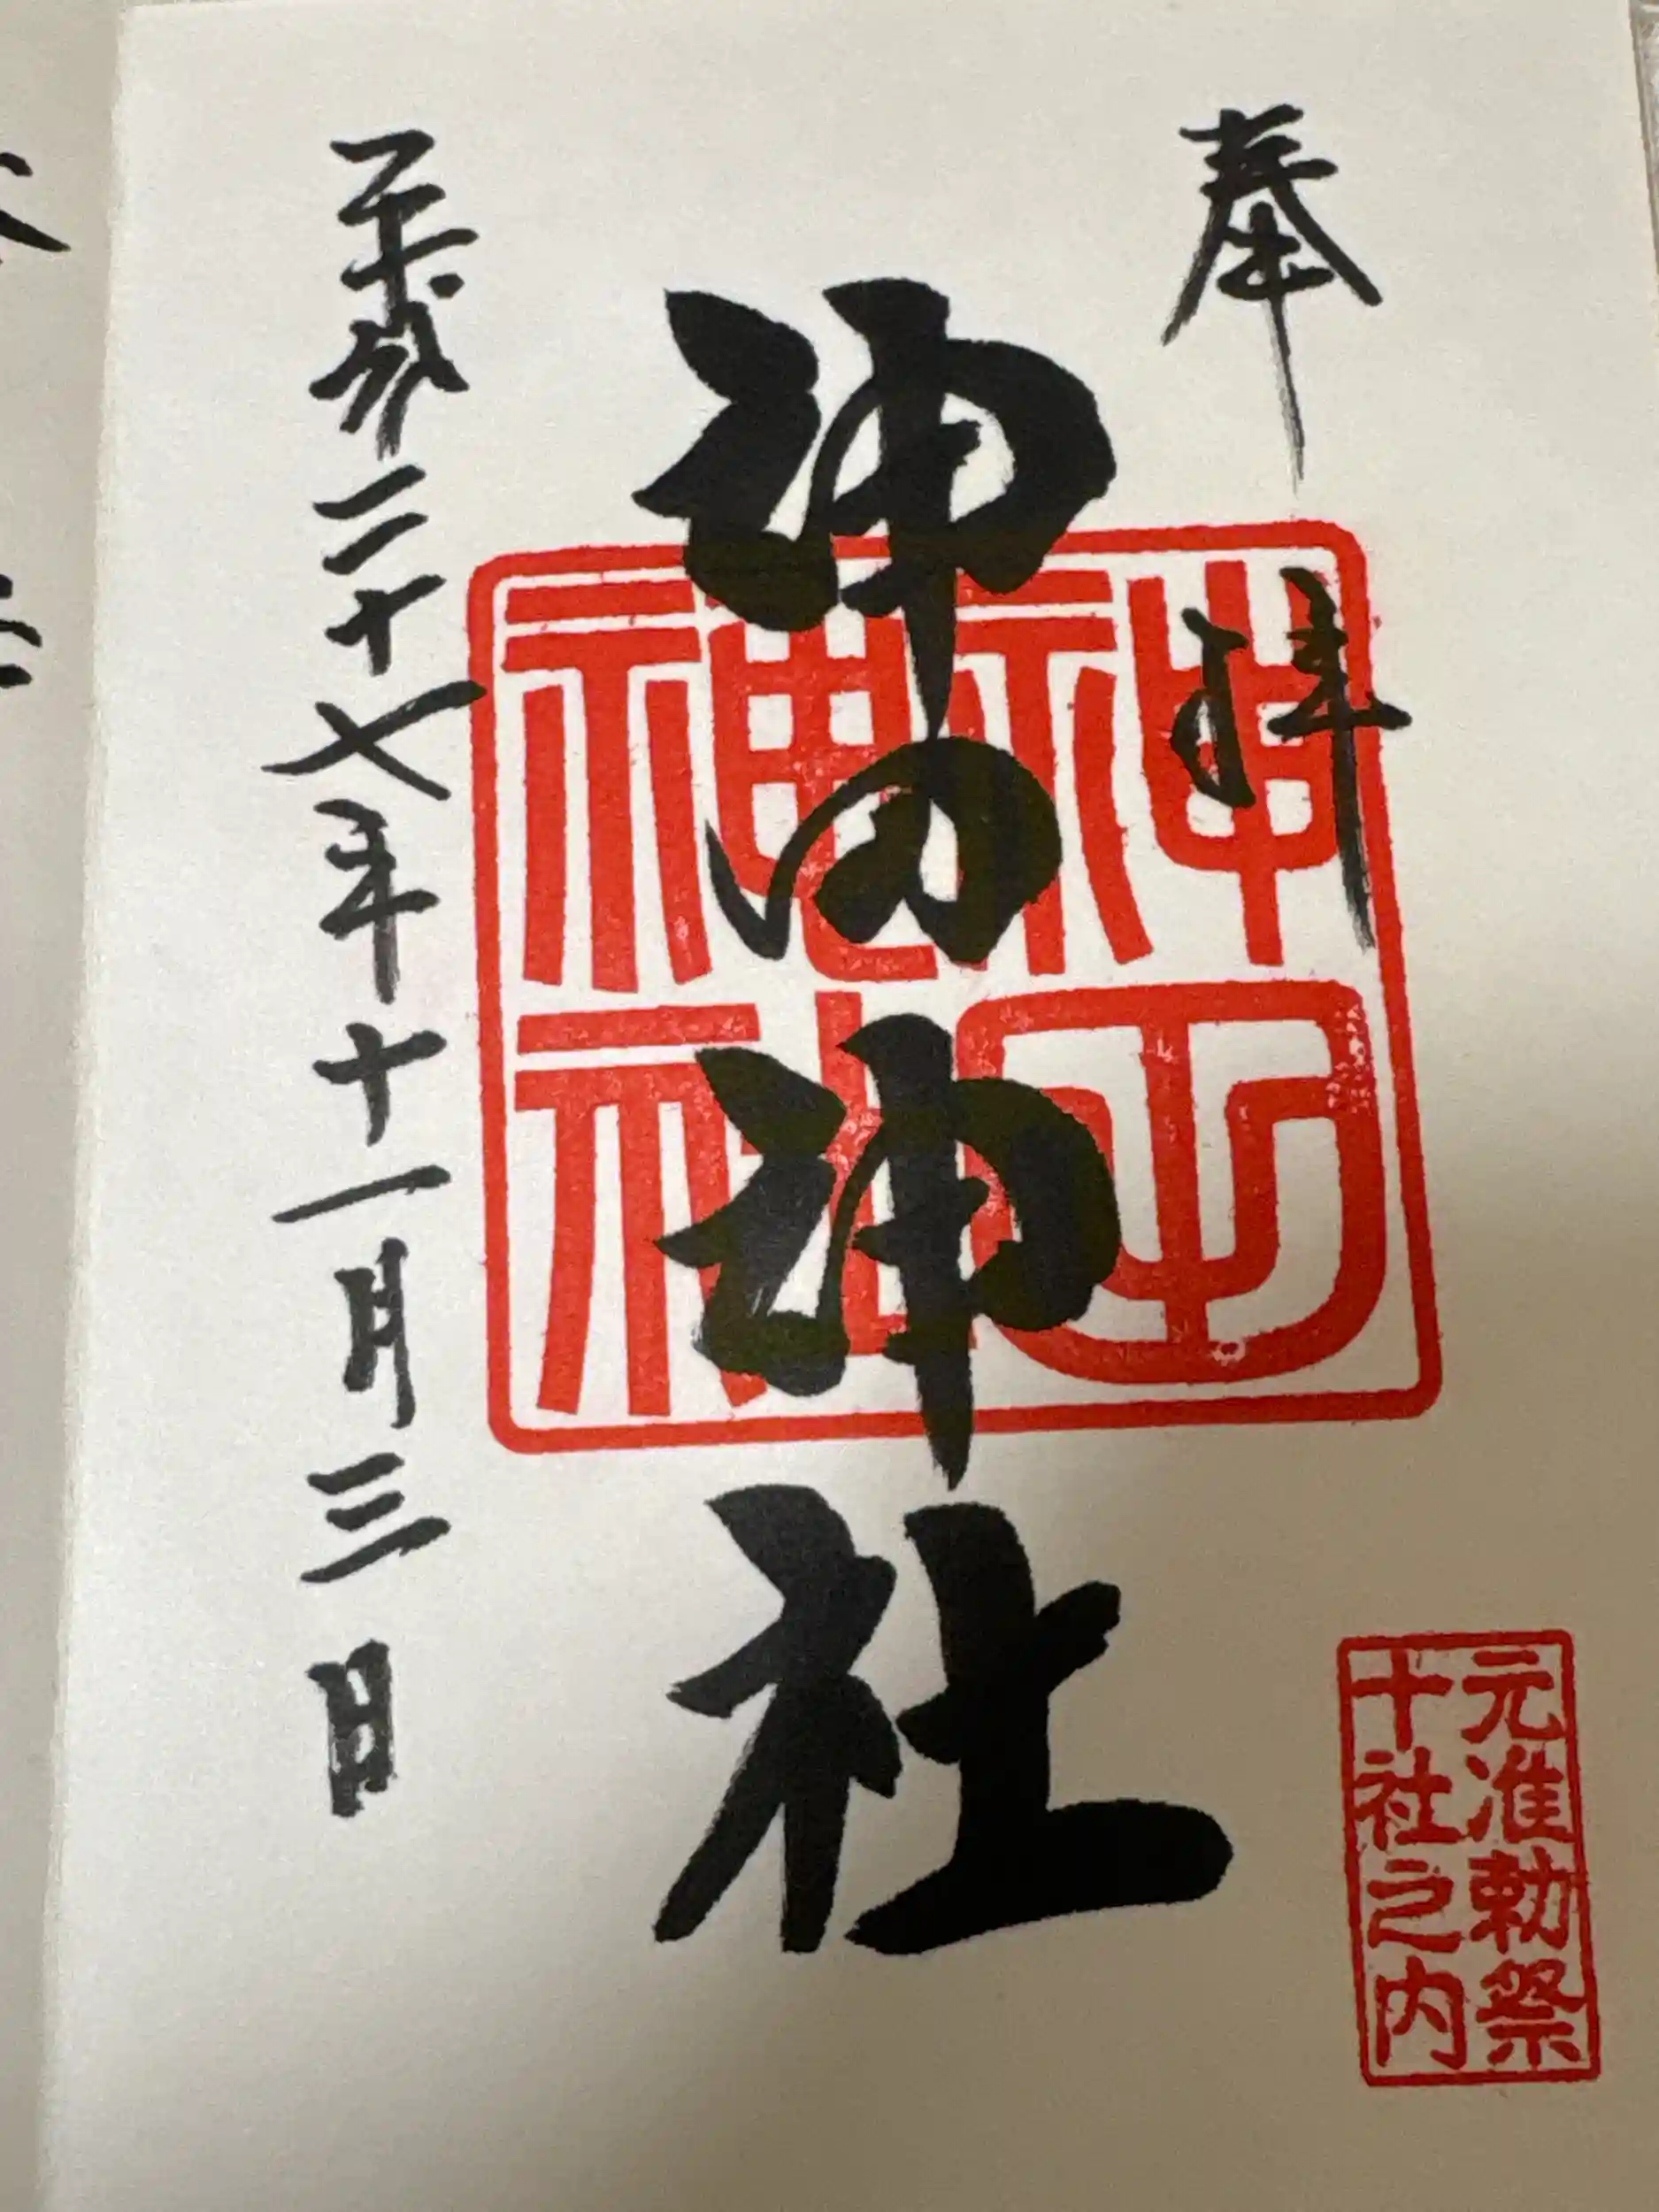 奉拝
元准勅祭
十社之内
神田神社
神田
神社
平成二十七年十一月三日